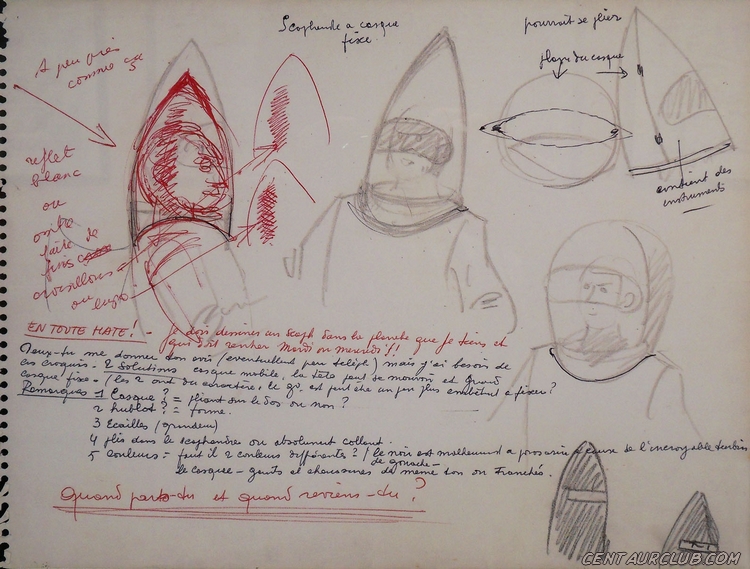 A peu près
comme ça
Scaphandre a casque
fixe.
pourrait se plier
du casque
contient des
instruments
reflet
blanc
ou
faite de
croisillons
ou
EN TOUTE HATE! - Je dois dessiner un scaph dans la planche que je tiens et
qui doit rentrer Mardi ou mercredi!!
Peux-tu me donner ton avis (eventuellement par teleph) mais j'ai besoin de
ces croquis. 2 Solutions casque mobile, la tete peut se mouvoir et Grand
casque fixe - (les 2 ont du caractère, le gd. est peut etre un peu plus embêtant a fixer?
Remarques 1 Casque? = pliant sur le dos ou non?
2 hublot? = forme.
3 Ecailles (grandeur)
4 plis dans le scaphandre ou absolument collant.
5 Couleurs = faut il 2 couleurs différentes? / le noir est malheureux a proscrire a cause de l'incroyable
de gouache -
le casque - gants et chaussures du meme ton ou tranchés.
Quand pars-tu et quand reviens-tu?
CENTAURCLUB.COM